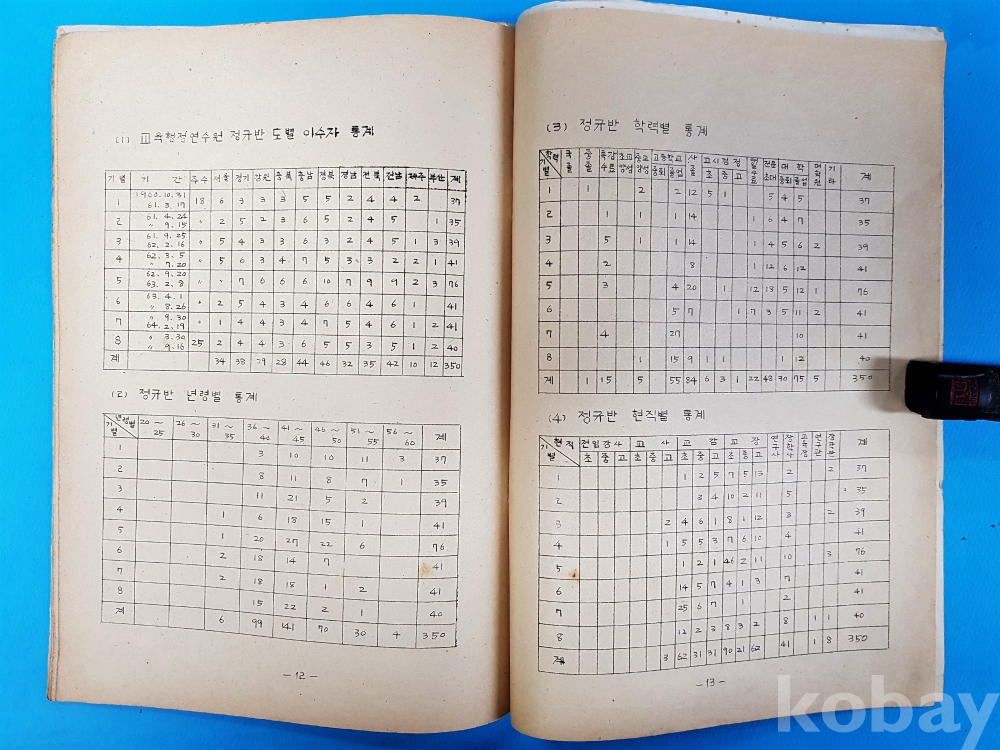 (1) 교육행정연수원 정규반 도별 이수자 통계
기별 기 간 주수 서울 경기 강원 충북 충남 경북 경남 전북 전남 제주 부산 계
1 1960.10.31 61.3.17 18 6 3 3 3 5 5 2 4 4 2 37
2 61.4.24 〃 9.15 〃 2 5 2 3 6 5 2 4 5 1 35
3 61.9.25 62.2.16 〃 5 4 3 3 6 3 2 4 5 1 3 39
4 62.3.5 〃 7.20 〃 5 6 3 4 7 5 3 3 2 2 1 41
5 62.9.20 63.2.8 〃 〃 7 6 6 6 10 7 9 9 2 3 76
6 63.4.1 〃 8.26 〃 2 5 4 3 4 6 6 4 6 1 41
7 〃 9.30 64.2.19 〃 1 4 4 3 4 7 5 4 6 1 2 41
8 〃 3.30 〃 9.16 25 2 4 4 3 6 5 5 3 5 1 2 40
계 34 38 29 28 44 46 32 35 42 10 12 350
(2) 정규반 년령별 통계
기별 년령별 20~25 26~30 31~35 36~40 41~45 46~50 51~55 56~60 계
1 3 10 10 11 3 37
2 8 11 8 7 1 35
3 11 21 5 2 39
4 1 6 18 15 1 41
5 1 20 27 22 6 76
6 2 18 14 7 41
7 2 18 18 1 2 41
8 15 22 2 1 40
계 6 99 141 70 30 4 350
- 12 -
(3) 정규반 학력별 통계
기별 학력 국졸 중졸 특강수료 초교양성 중교양성 고등학교 중퇴 졸업 사졸 고시검정 초 중 고 전문초대 대학 중퇴 졸업 대학원 기타 계
1 1 2 2 12 5 1 5 4 5 37
2 1 1 1 14 1 6 4 7 35
3 5 1 1 14 1 4 5 6 2 39
4 2 8 1 12 6 12 41
5 3 4 20 1 12 18 5 12 1 76
6 5 7 1 7 3 5 11 2 41
7 4 27 10 41
8 1 15 9 1 1 1 12 40
계 1 15 5 55 84 6 3 1 22 48 30 75 5 350
(4) 정규반 현직별 통계
기별 현직 전임강사 초 중 고 교사 초 중 고 교감 초 중 고 교장 초 중 고 계
1 1 2 5 7 5 13 2 2 37
2 3 4 10 2 11 5 35
3 2 4 6 1 8 1 12 3 2 39
4 1 5 5 3 7 6 10 4 41
5 1 2 1 46 2 11 10 3 76
6 14 5 7 4 1 3 7 41
7 25 6 7 1 2 41
8 12 2 3 8 3 2 8 1 1 40
계 3 62 31 31 90 21 62 41 1 8 350
- 13 -
kobay